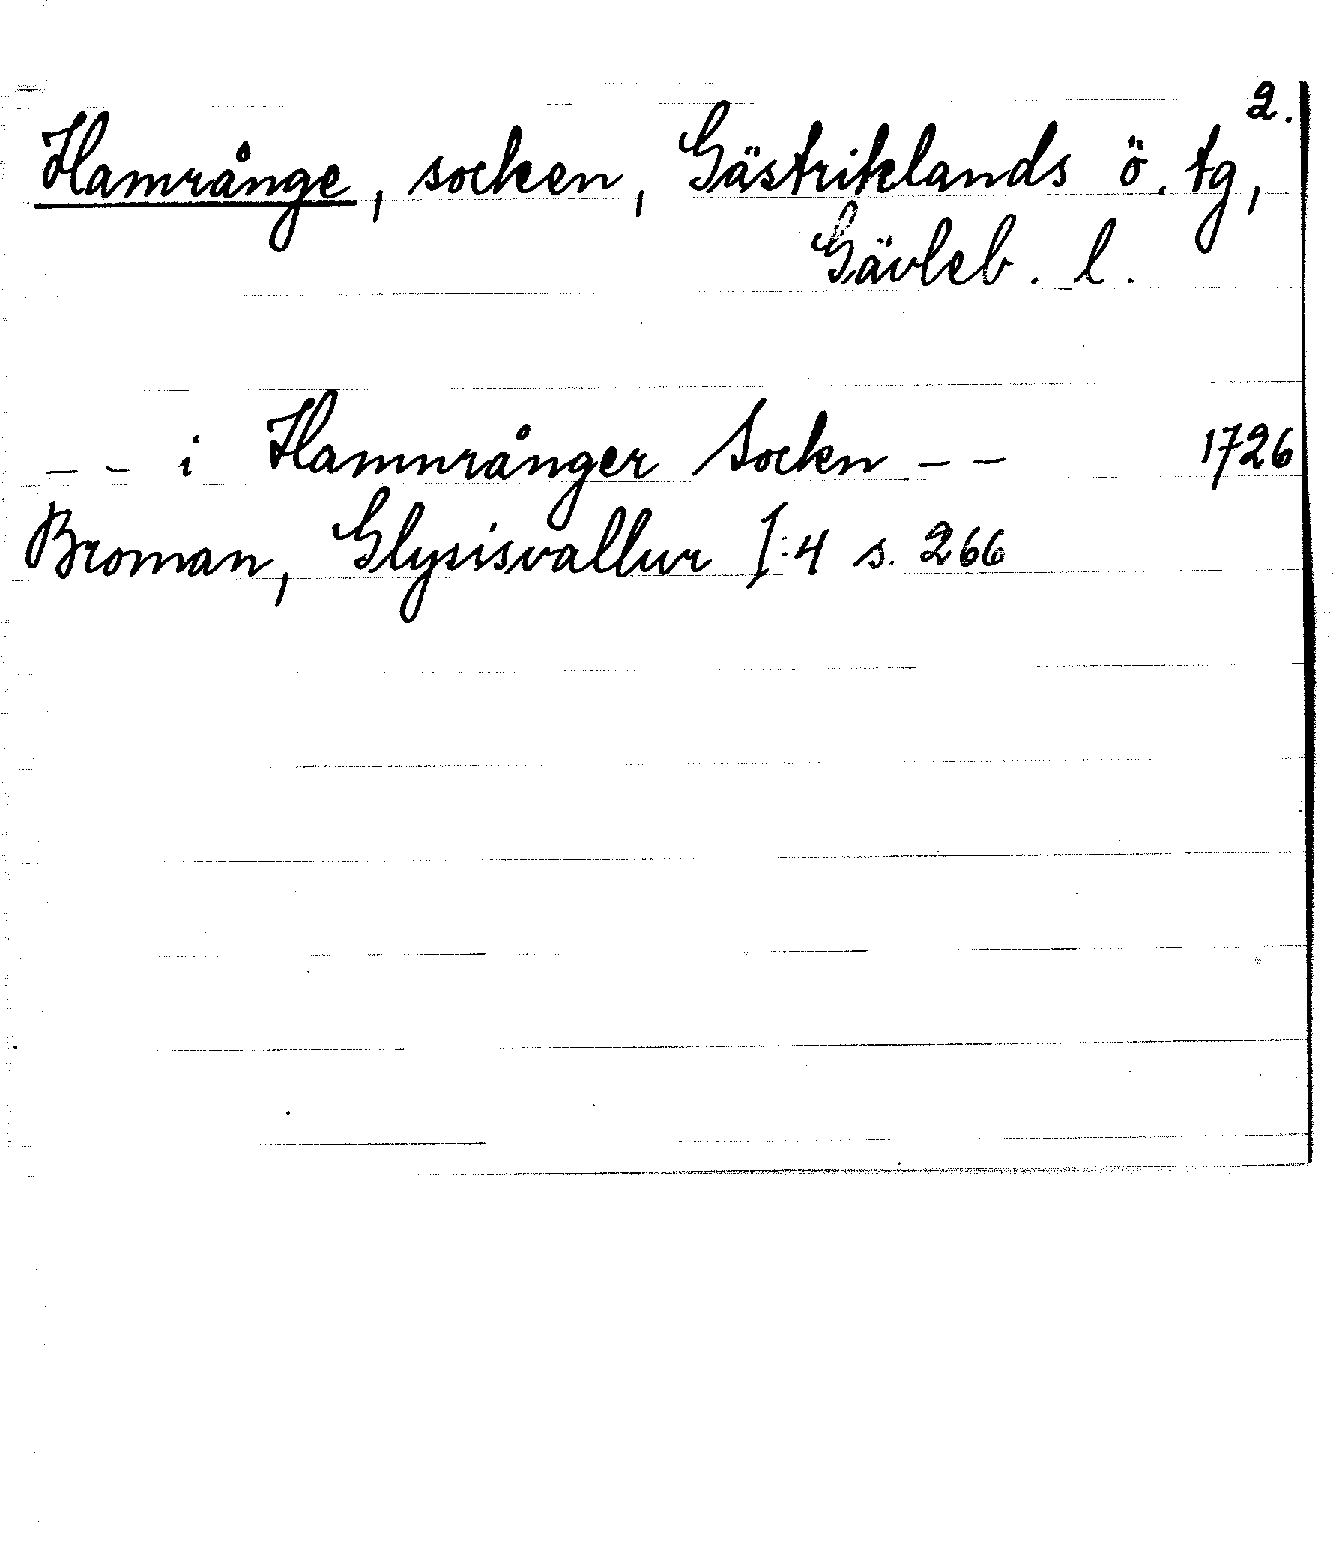 2.
Hamrånge, socken, Gästriklands ö. tg,
Gävleb. l.
-- i Hamnrånger Socken -- 1726
Broman, Glysisvallur I:4 s. 266